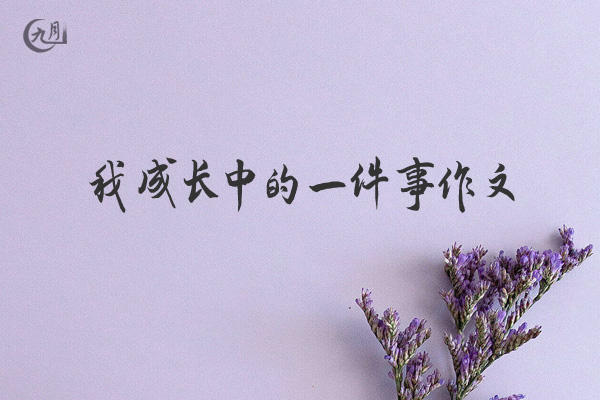 九月
我成长中的一件事作文